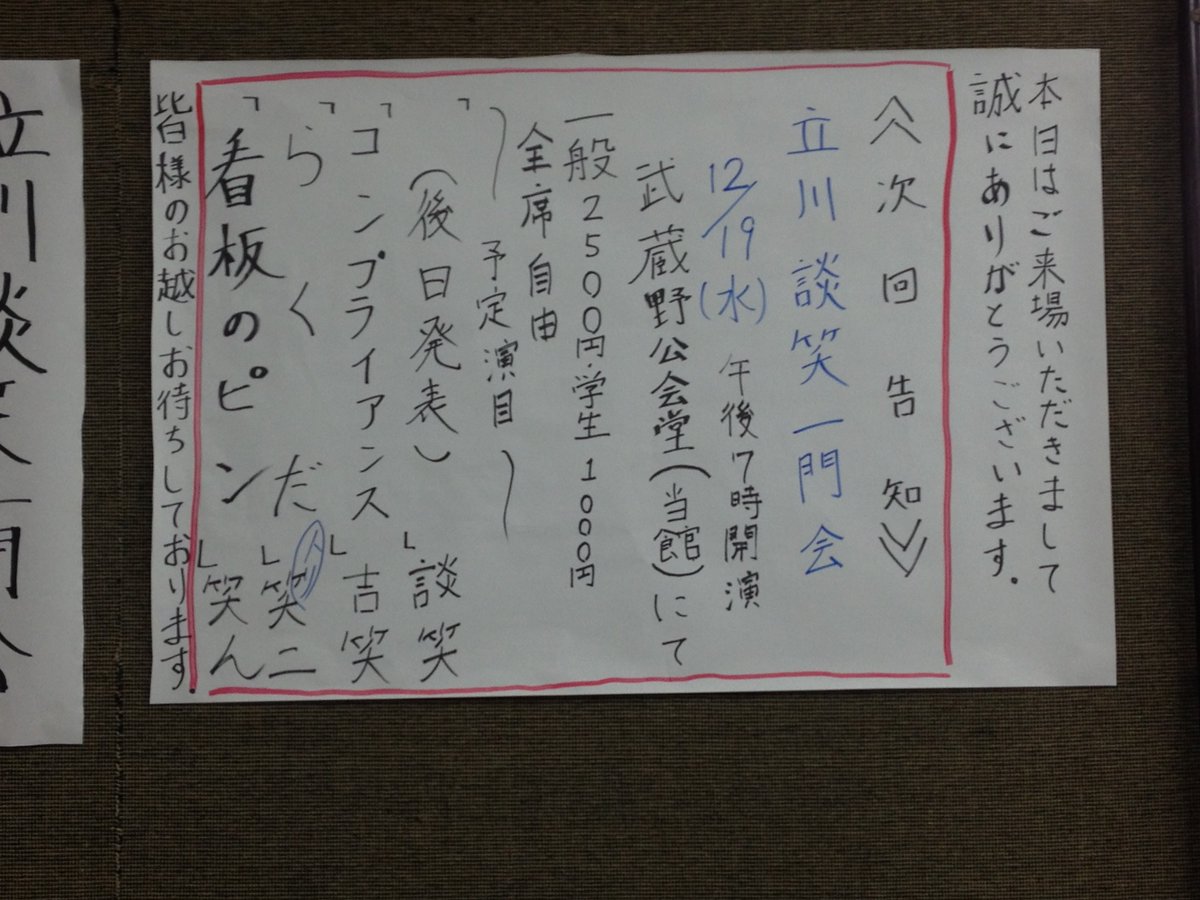 本日はご来場いただきまして
誠にありがとうございます。
≪次回告知≫
立川談笑一門会
12/19(水)午後7時開演
武蔵野公会堂(当館)にて
一般2500円・学生1000円
全席自由
〜予定演目〜
「(後日発表)」談笑
「コンプライアンス」吉笑
「らくだ」笑二
「看板のピン」笑ん
皆様のお越しお待ちしております。
立川談笑一門会